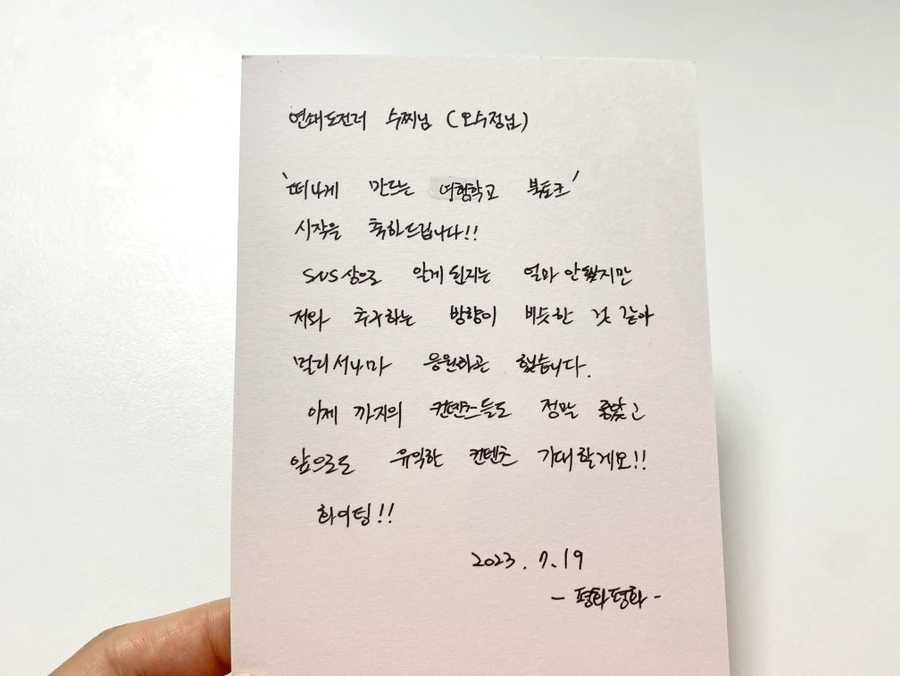 연쇄도전러 수찌님 (오수정님)
'떠나게 만드는 여행학교 북토크'
시작을 축하드립니다!!
SNS상으로 알게 된지는 얼마 안됐지만
저와 추구하는 방향이 비슷한 것 같아
멀리서나마 응원하곤 했습니다.
이제 까지의 컨텐츠들도 정말 좋았고
앞으로도 유익한 컨텐츠 기대할게요!!
화이팅!!
2023. 7. 19
- 평화평화 -